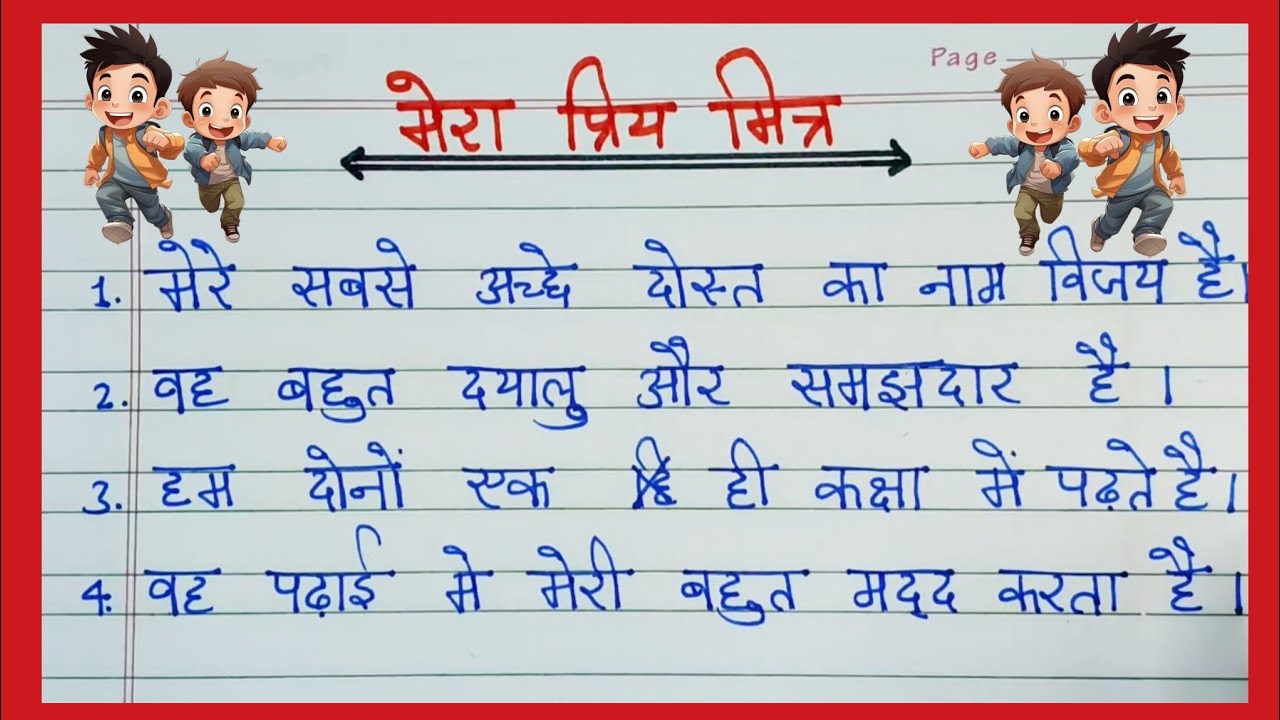 Page
मेरा प्रिय मित्र
1. मेरे सबसे अच्छे दोस्त का नाम विजय है।
2. वह बहुत दयालु और समझदार है ।
3. हम दोनों एक ही कक्षा में पढ़ते है।
4. वह पढ़ाई मे मेरी बहुत मद्द करता है ।